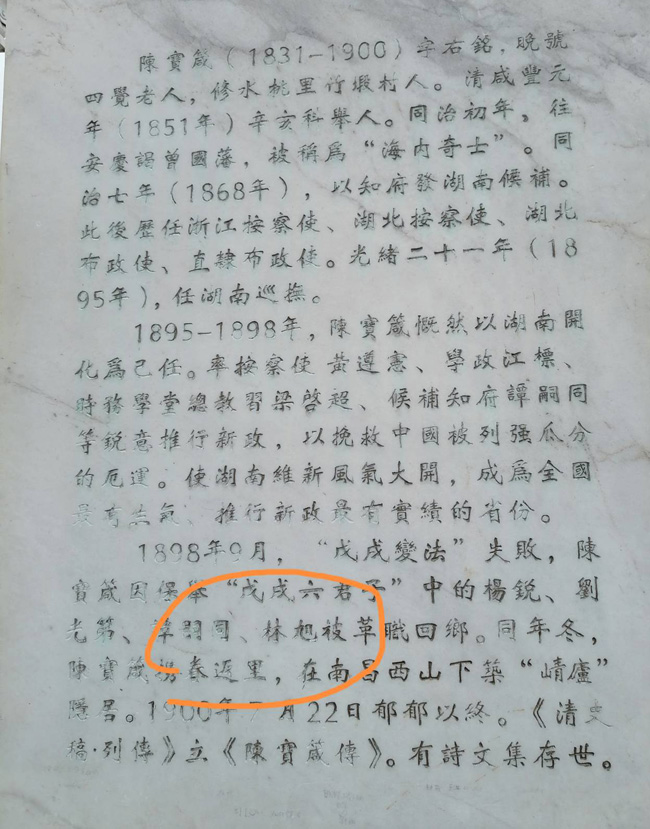 陳寶箴(1831-1900)字右銘,晚號
四覺老人,修水桃里竹塅村人。清咸豐元
年(1851年)辛亥科舉人。同治初年,往
安慶謁曾國藩,被稱爲“海内奇士”。同
治七年(1868年),以知府發湖南候補。
此後歷任浙江按察使、湖北按察使、湖北
布政使、直隸布政使。光緒二十一年(18
95年),任湖南巡撫。
1895-1898年,陳寶箴慨然以湖南開
化爲己任。率按察使黃遵憲、學政江標、
時務學堂總教習梁啓超、候補知府譚嗣同
等鋭意推行新政,以挽救中國被列强瓜分
的厄運。使湖南維新風氣大開,成爲全國
最有志氣、推行新政最有實績的省份。
1898年9月,“戊戌變法”失敗,陳
寶箴因保舉“戊戌六君子”中的楊鋭、劉
光第、譚嗣同、林旭被革職回鄉。同年冬,
陳寶箴挈眷返里,在南昌西山下築“崝廬”
隱居。1900年7月22日郁郁以終。《清史
稿·列傳》立《陳寶箴傳》。有詩文集存世。